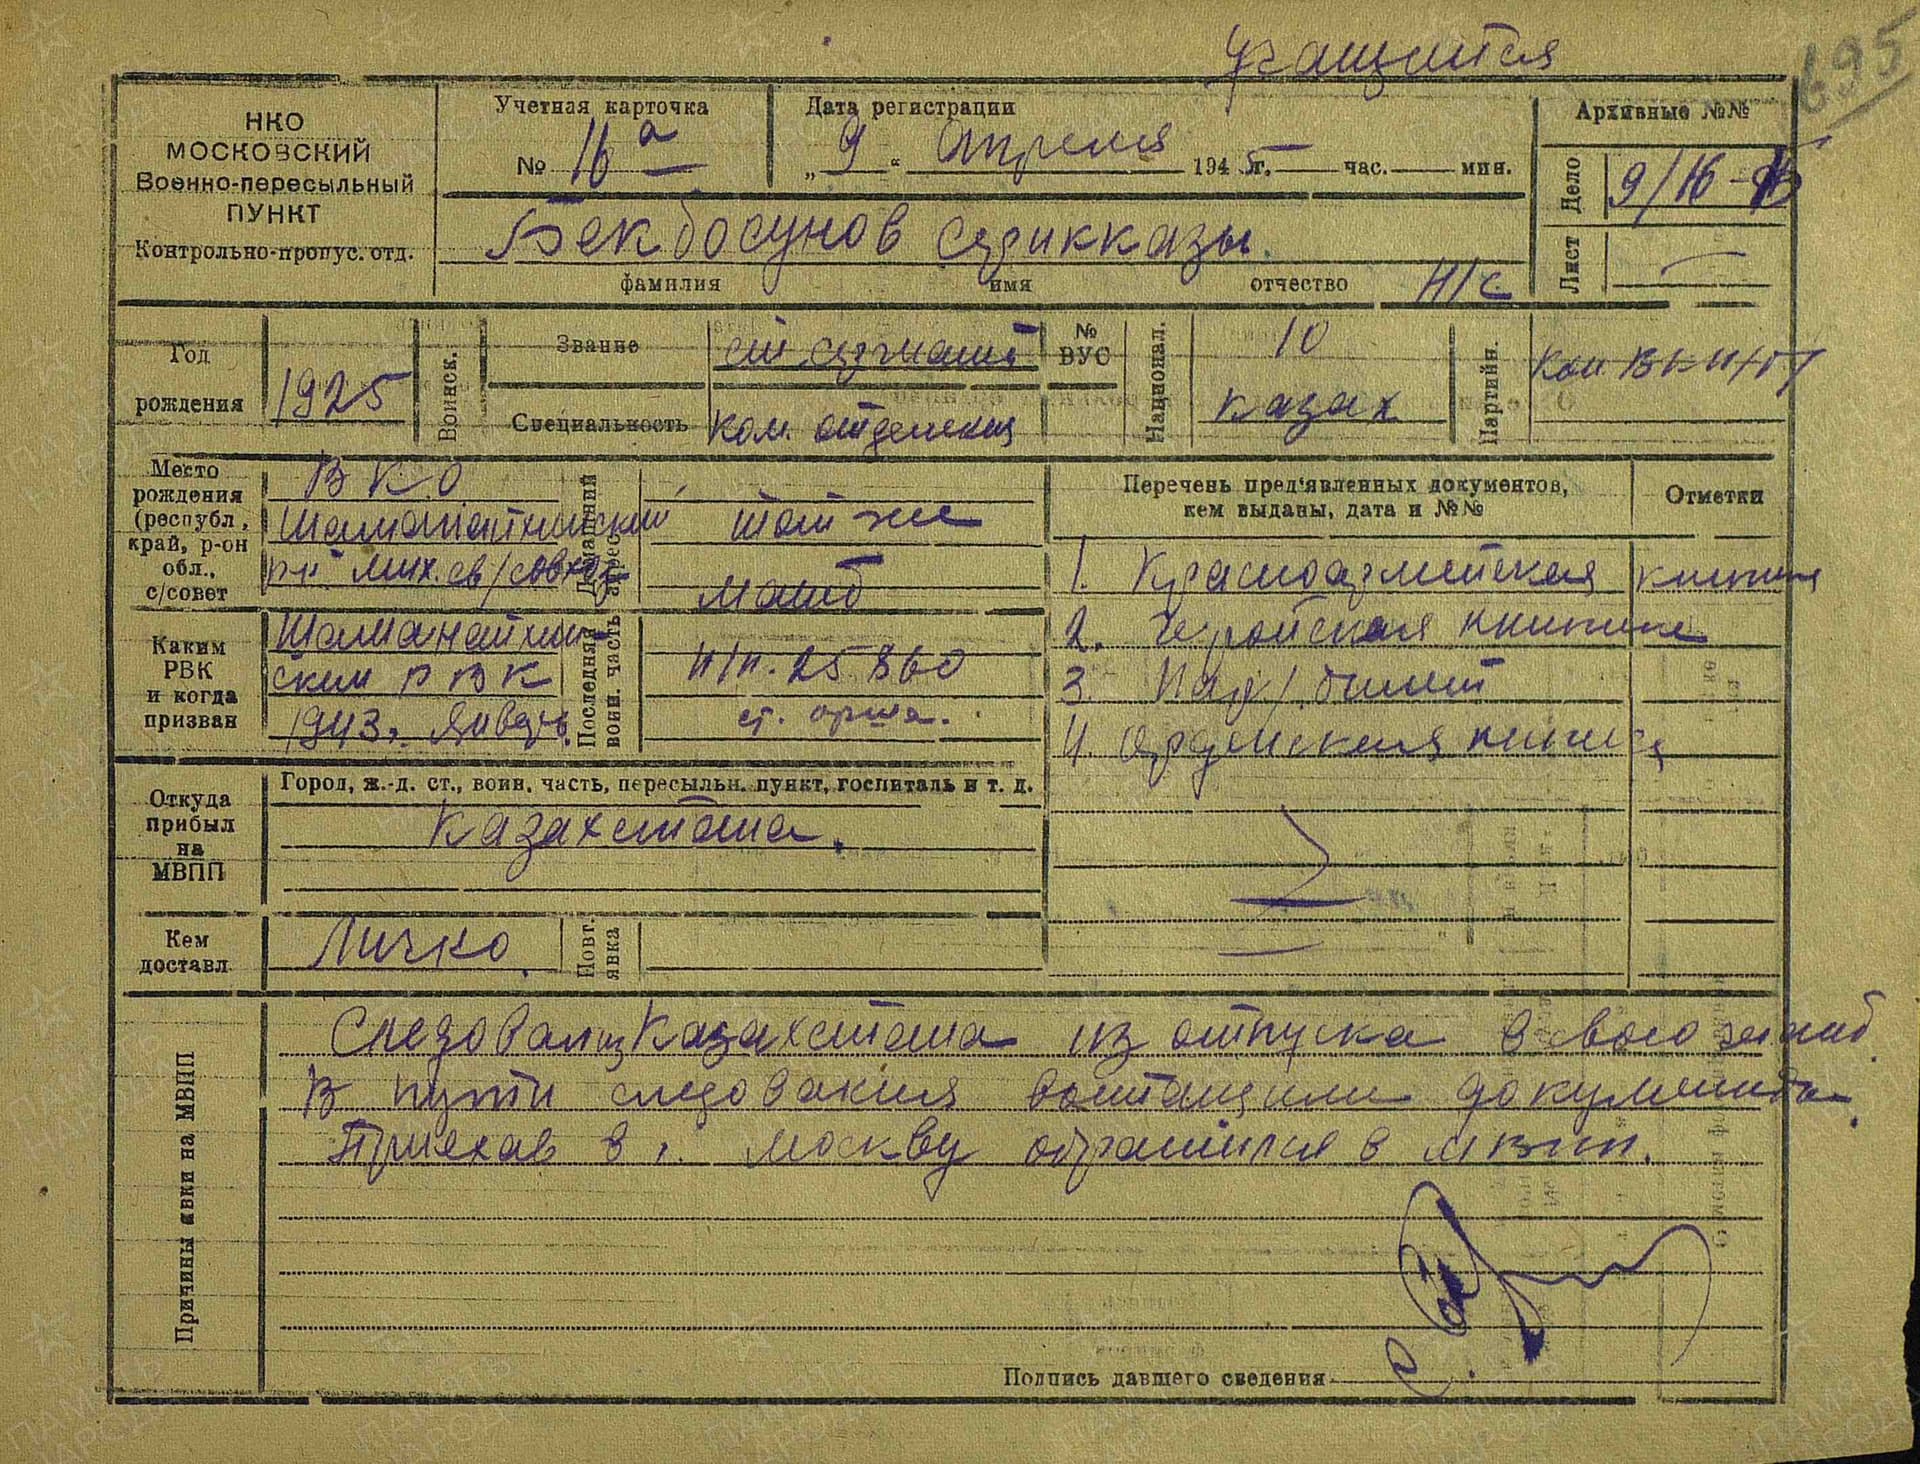 учащийся
695
НКО
МОСКОВСКИЙ
Военно-пересыльный
ПУНКТ
Контрольно-пропус. отд.
Учетная карточка
№ 16 а
Дата регистрации
„ 9 “ Апреля 1945 г. час. мин.
Архивные №№
Дело 9/16-
Лист
Бекбосунов Серикказы.
фамилия имя отчество
Н/с
Год
рождения
1925
Воинск.
Звание ст. сержант
Специальность ком. отделения
№
ВУС
Национал.
10
казах
Партийн.
Кан ВКП/б/
Место
рождения
(республ,
край, р-он
обл.,
с/совет
ВКО
Шаманайхинский
р-н
совхоз
Домашний
адрес
там же
мать
Каким
РВК
и когда
призван
Шаманайхин
ским РВК
1943 г. Январь.
Последняя
воин. часть
п/п. 25860
ст. орша.
Перечень пред'явленных документов,
кем выданы, дата и №№
Отметки
1. Красноармейская книжка
2. Геройская книжка
3. Парт/билет
4. Орденская книжка
Откуда
прибыл
на
МВПП
Город, ж.-д. ст., воин. часть, пересыльн. пункт, госпиталь и т. д.
Казахстана.
Кем
доставл
Лично.
Повт.
явка
Причины явки на МВПП
Следовал из Казахстана из отпуска в свою часть.
В пути следования вытащили документы.
Приехав в г. Москву обратился в МВПП.
Подпись давшего сведения
ПАМЯТЬ
НАРОДА